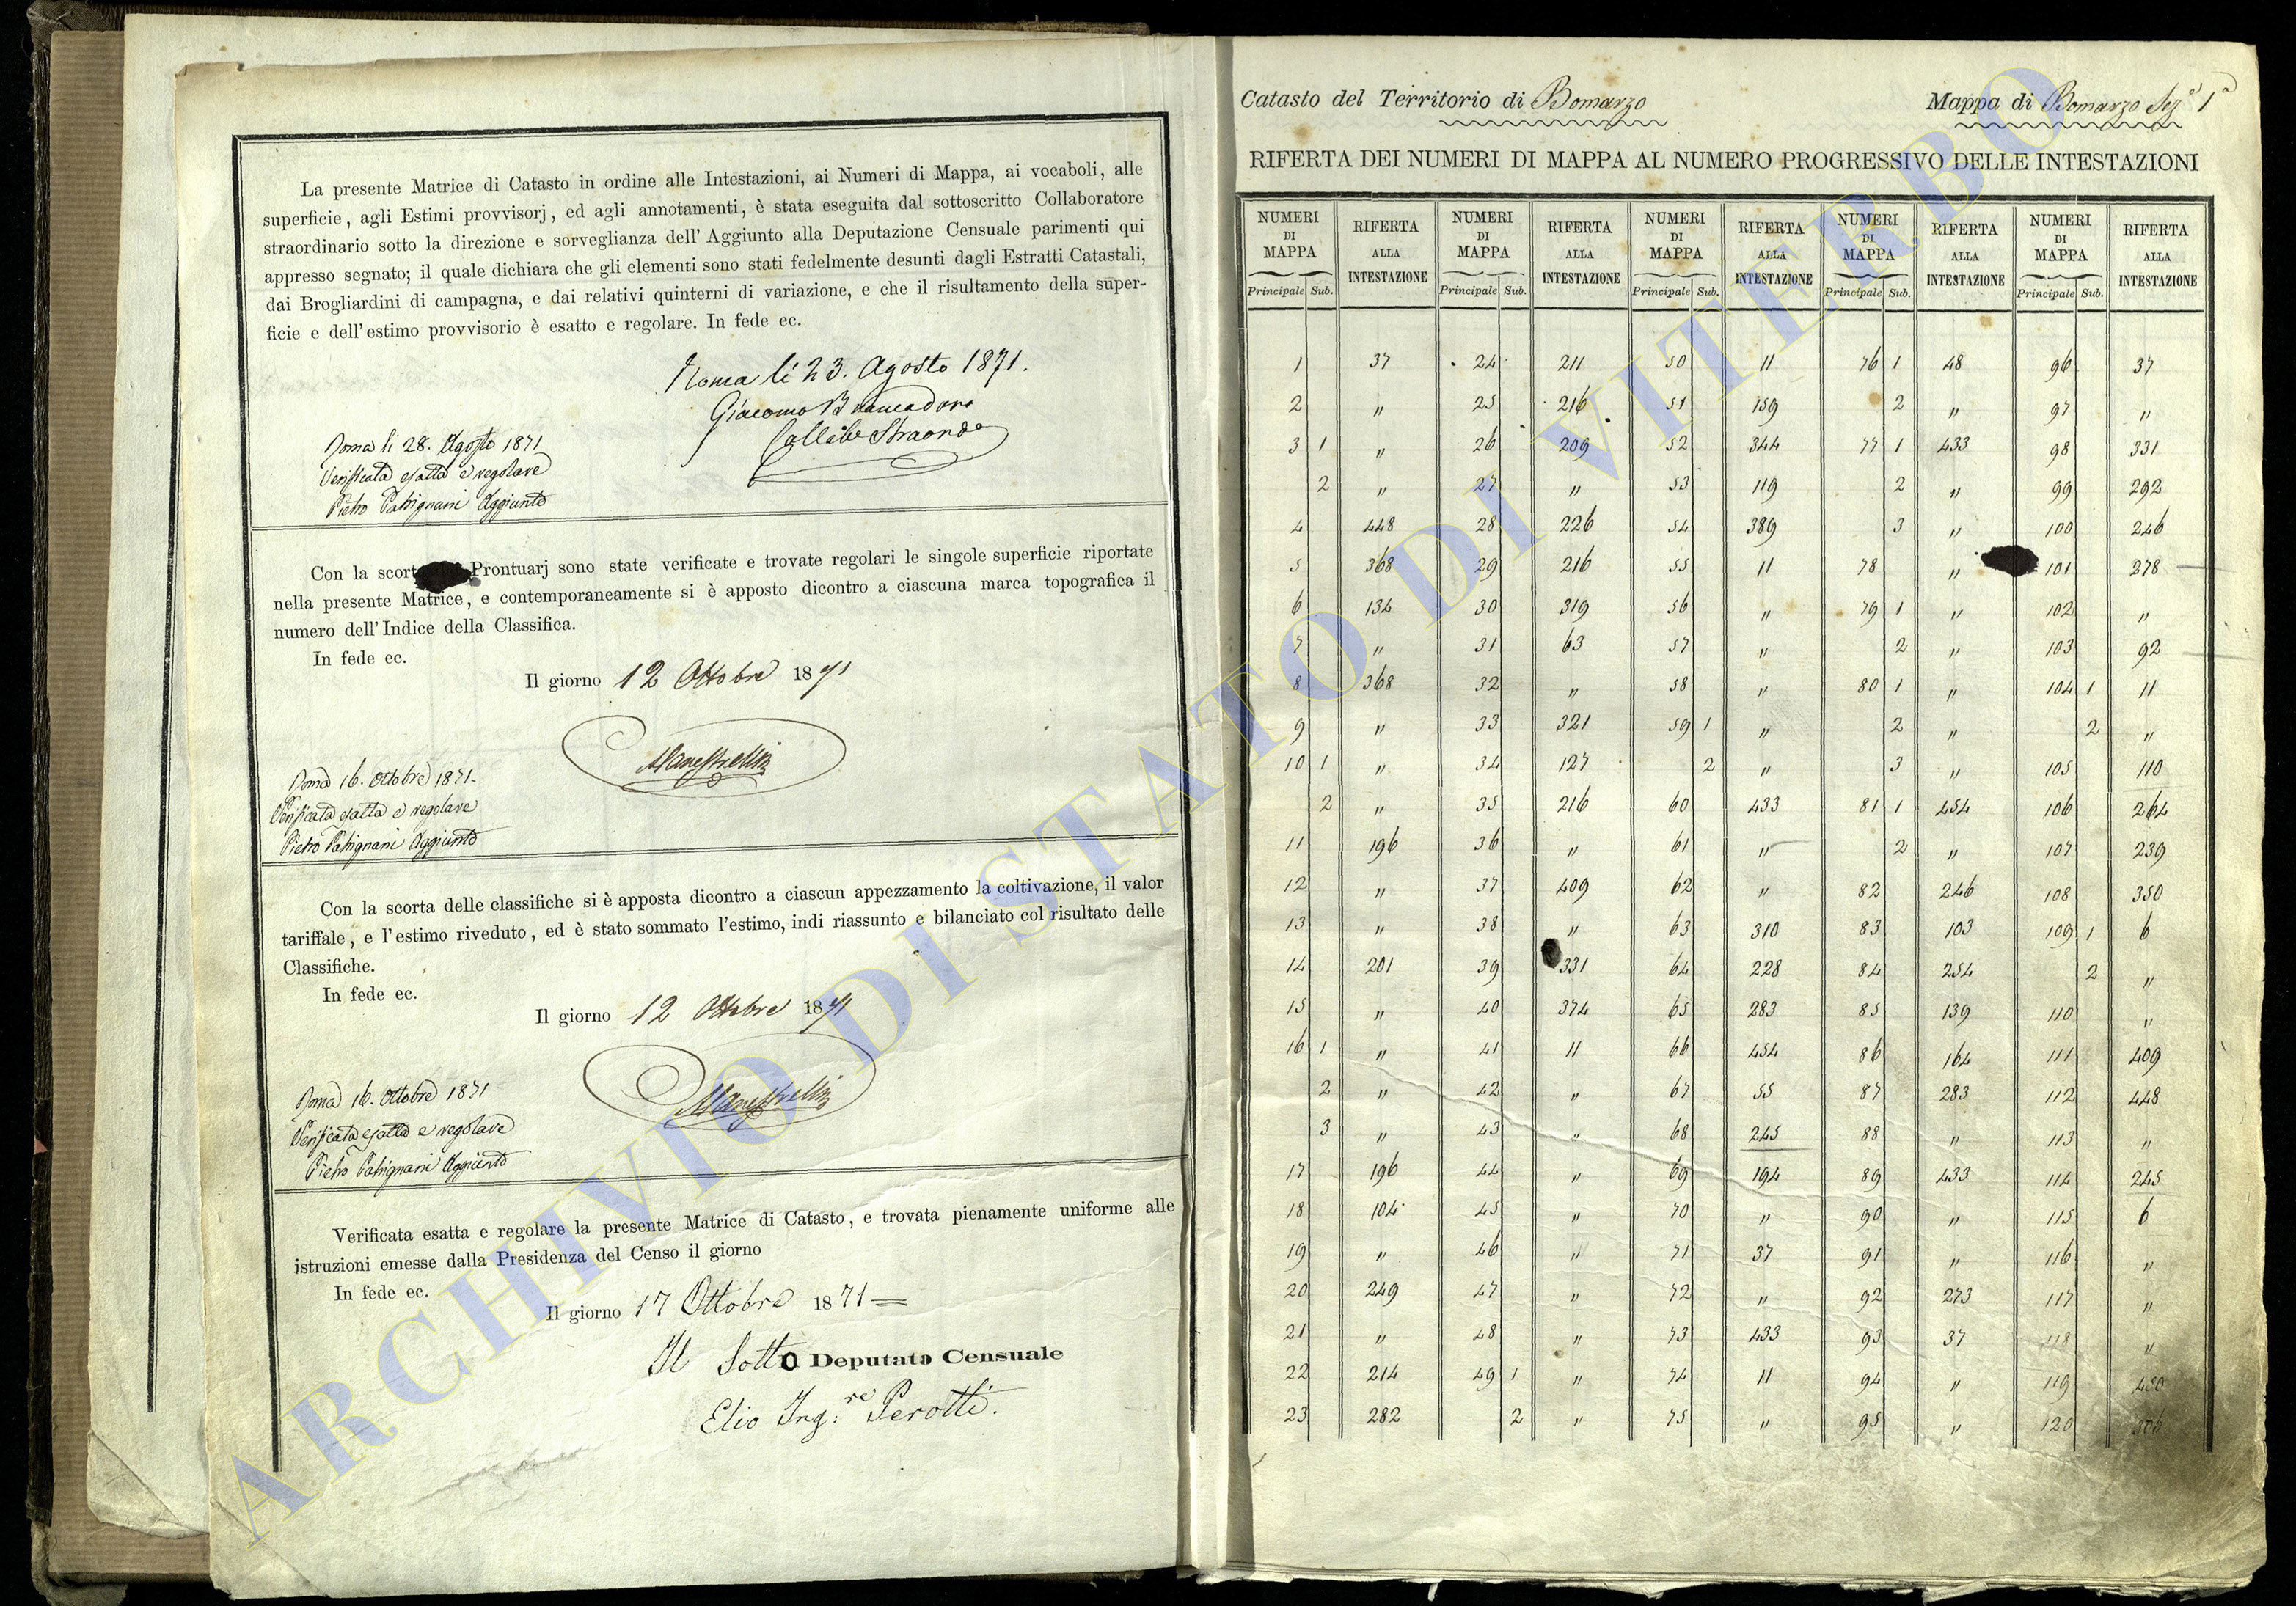 La presente Matrice di Catasto in ordine alle Intestazioni, ai Numeri di Mappa, ai vocaboli, alle
superficie, agli Estimi provvisorj, ed agli annotamenti, è stata eseguita dal sottoscritto Collaboratore
straordinario sotto la direzione e sorveglianza dell'Aggiunto alla Deputazione Censuale parimenti qui
appresso segnato; il quale dichiara che gli elementi sono stati fedelmente desunti dagli Estratti Catastali,
dai Brogliardini di campagna, e dai relativi quinterni di variazione, e che il risultamento della super-
ficie e dell'estimo provvisorio è esatto e regolare. In fede ec.
Roma li 23. Agosto 1871.
Giacomo Brancadoro
Roma li 28. Agosto 1871
Verificata esatta e regolare
Pietro Aggiunto
Con la Prontuarj sono state verificate e trovate regolari le singole superficie riportate
nella presente Matrice, e contemporaneamente si è apposto dicontro a ciascuna marca topografica il
numero dell'Indice della Classifica.
In fede ec.
Il giorno 12 Ottobre 1871
Roma 16. Ottobre 1871.
Verificata esatta e regolare
Pietro Aggiunto
Con la scorta delle classifiche si è apposta dicontro a ciascun appezzamento la coltivazione, il valor
tariffale, e l'estimo riveduto, ed è stato sommato l'estimo, indi riassunto e bilanciato col risultato delle
Classifiche.
In fede ec.
Il giorno 12 Ottobre 1871
Roma 16. Ottobre 1871
Verificata esatta e regolare
Pietro Aggiunto
Verificata esatta e regolare la presente Matrice di Catasto, e trovata pienamente uniforme alle
istruzioni emesse dalla Presidenza del Censo il giorno
In fede ec.
Il giorno 17 Ottobre 1871
Il Sotto Deputato Censuale
Elio Ing:re Perotti.
Catasto del Territorio di Bomarzo Mappa di Bomarzo Sez.e 1a
RIFERTA DEI NUMERI DI MAPPA AL NUMERO PROGRESSIVO DELLE INTESTAZIONI
NUMERI DI MAPPA RIFERTA ALLA INTESTAZIONE NUMERI DI MAPPA RIFERTA ALLA INTESTAZIONE NUMERI DI MAPPA RIFERTA ALLA INTESTAZIONE NUMERI DI MAPPA RIFERTA ALLA INTESTAZIONE NUMERI DI MAPPA RIFERTA ALLA INTESTAZIONE
Principale Sub. Principale Sub. Principale Sub. Principale Sub. Principale Sub.
1 37 24 211 50 11 76 1 48 96 37
2 " 25 216 51 159 2 " 97 "
3 1 " 26 209 52 344 77 1 433 98 331
2 " 27 " 53 119 2 " 99 292
4 448 28 226 54 389 3 " 100 246
5 368 29 216 55 11 78 " 101 278
6 134 30 319 56 " 79 1 " 102 "
7 " 31 63 57 " 2 " 103 92
8 368 32 " 58 " 80 1 " 104 1 11
9 " 33 321 59 1 " 2 " 2 "
10 1 " 34 127 2 " 3 " 105 110
2 " 35 216 60 433 81 1 454 106 264
11 196 36 " 61 " 2 " 107 239
12 " 37 409 62 " 82 246 108 350
13 " 38 " 63 310 83 103 109 1 6
14 201 39 331 64 228 84 254 2 "
15 " 40 374 65 283 85 139 110 "
16 1 " 41 11 66 454 86 164 111 409
2 " 42 " 67 55 87 283 112 448
3 " 43 " 68 245 88 " 113 "
17 196 44 " 69 194 89 433 114 245
18 104 45 " 70 " 90 " 115 6
19 " 46 " 71 37 91 " 116 "
20 249 47 " 72 " 92 273 117 "
21 " 48 " 73 433 93 37 118 "
22 214 49 1 " 74 11 94 " 119 450
23 282 2 " 75 " 95 " 120
ARCHIVIO DI STATO DI VITERBO